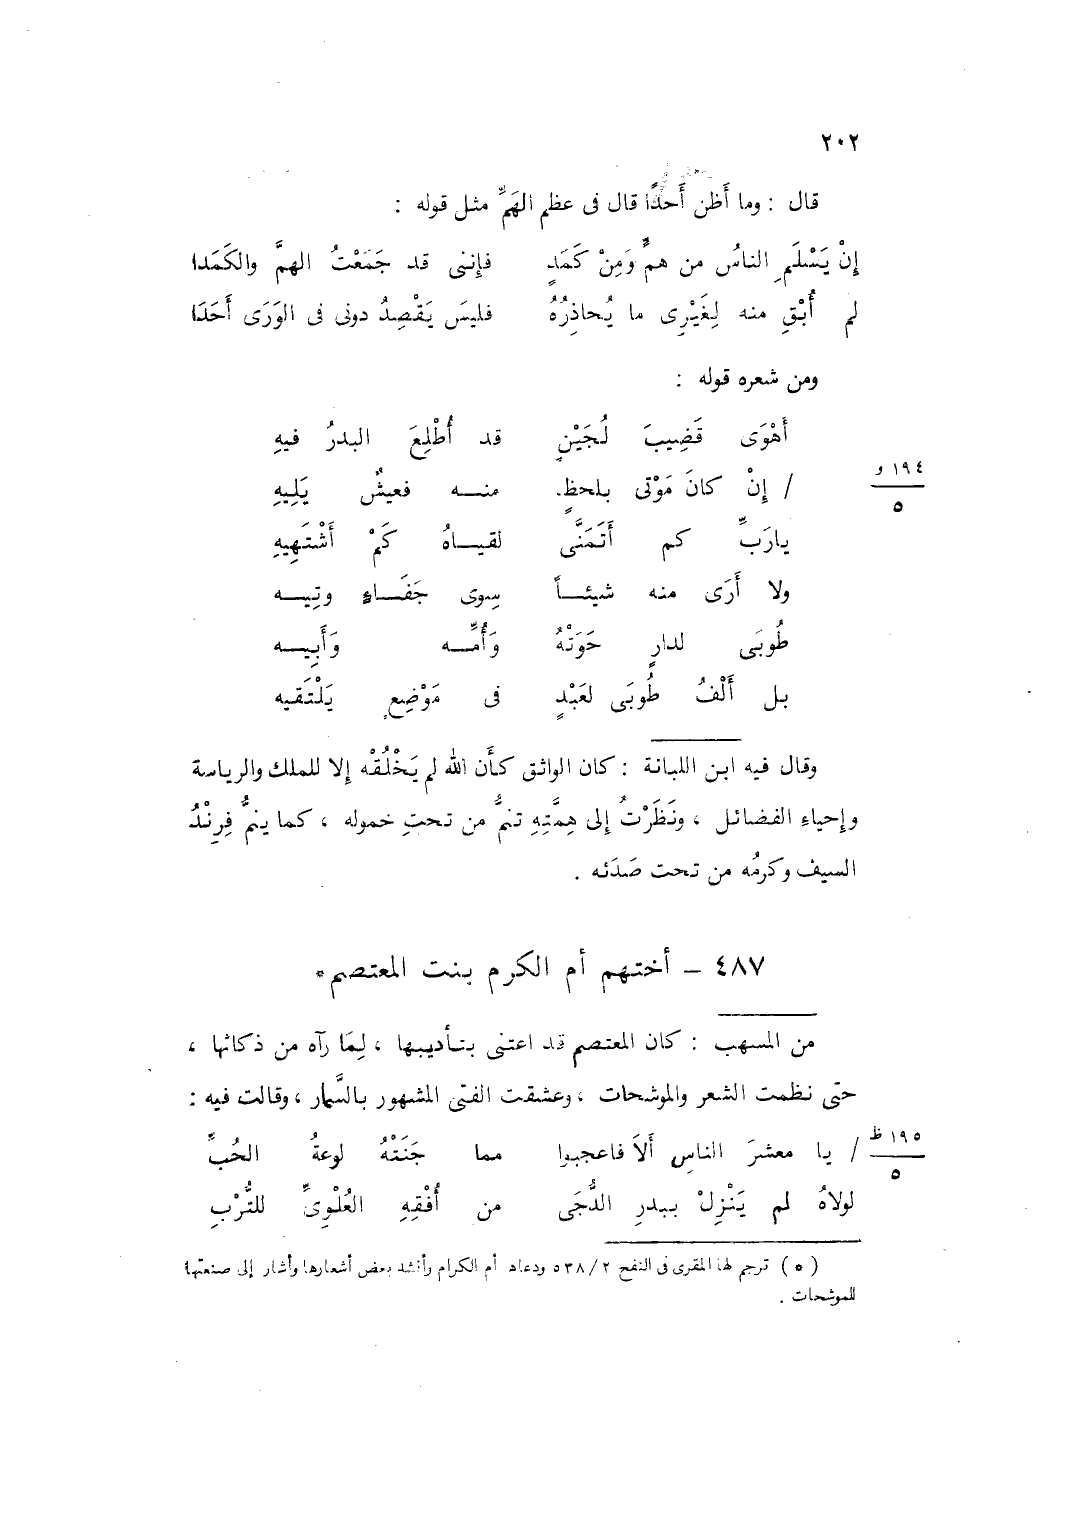 ٢٠٢
قال : وما أَظن أَحدًا قال فى عظم الهَمِّ مثل قوله :
إِنْ يَسْلَمِ الناسُ من همٍّ وَمِنْ كَمَدٍ فإِننى قد جَمَعْتُ الهمَّ والكَمَدا
لم أُبْقِ منه لِغَيْرِى ما يُحاذِرُهُ فليسَ يَقْصِدُ دونى فى الوَرَى أَحَدَا
ومن شعره قوله :
أَهْوَى قَضِيبَ لُجَيْنٍ قد أُطْلِعَ البدرُ فيهِ
١٩٤ و / ٥
/ إِنْ كانَ مَوْتى بلحظٍ منه فعيشٌ يَلِيهِ
يارَبِّ كم أَتَمَنَّى لقياهُ كَمْ أَشْتَهِيهِ
ولا أَرَى منه شيئاً سِوى جَفَاءٍ وتِيه
طُوبَى لدارٍ حَوَتْهُ وَأُمِّه وَأَبِيه
بل أَلْفُ طُوبَى لعَبْدٍ فى مَوْضِعٍ يَلْتَقيه
وقال فيه ابن اللبانة : كان الواثق كأَن الله لم يَخْلُقْه إلا للملك والرياسة
وإحياءِ الفضائل ، ونَظَرْتُ إلى هِمَّتِهِ تنمُّ من تحتِ خموله ، كما ينمُّ فِرِنْدُ
السيف وكرمُه من تحت صَدَئه .
٤٨٧ – أختهم أم الكرم بنت المعتصم*
من المسهب : كان المعتصم قد اعتنى بتأديبها ، لِمَا رآه من ذكائها ،
حتى نظمت الشعر والموشحات ، وعشقت الفتى المشهور بالسَّمار ، وقالت فيه :
١٩٥ ظ / ٥
/ يا معشرَ الناسِ أَلاَ فاعجبوا مما جَنَتْهُ لوعةُ الحُبِّ
لولاهُ لم يَنْزِلْ ببدرِ الدُّجَى من أُفْقِهِ العُلْوِىِّ للتُّرْبِ
( * ) ترجم لها المقرى فى النفح ٢/ ٥٣٨ ودعاد أم الكرام وأنشد بعض أشعارها وأشار إلى صنعتها
للموشحات .